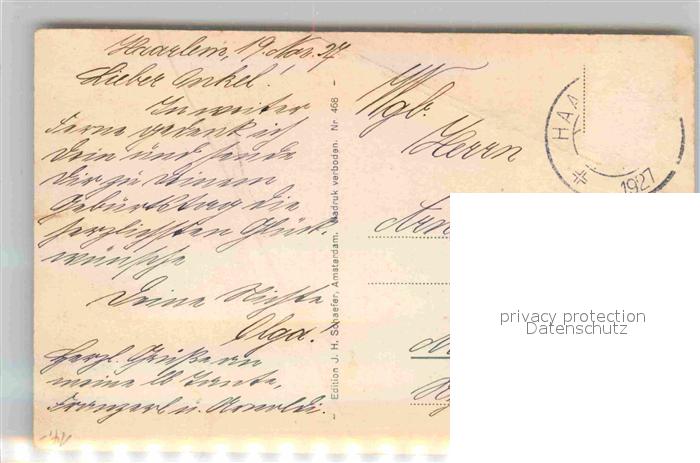 Haarlem, 19. Nov. 27
Lieber Onkel!
In weiter
Ferne gedenk ich
Dein und sende
Dir zu Deinem
Geburtstag die
herzlichsten Glück-
wünsche
Deine Nichte
Olga.
Herzl. Grüße an
meine lb Tante,
Franzerl u. Arnoldi.
Edition J. H. Schaefer, Amsterdam. Nadruk verboden. Nr 468
Wgb.
Herrn
HAA
1927
privacy protection
Datenschutz